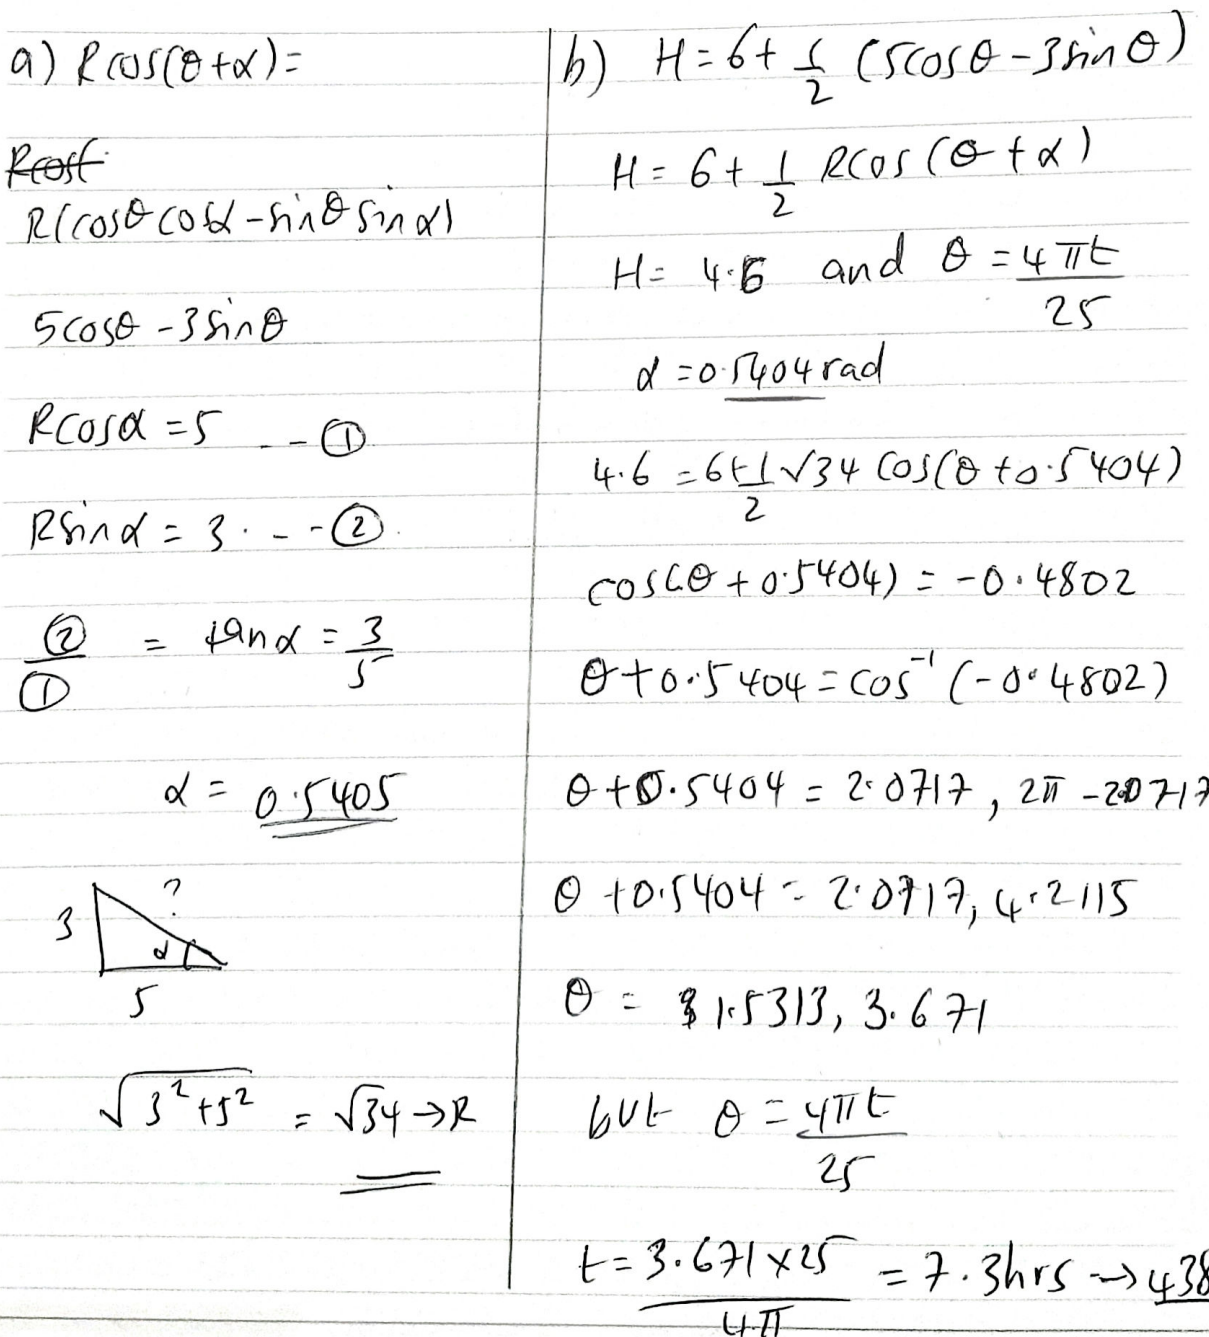 a) Rcos(θ+α)=
R(cosθcosα-sinθsinα)
5cosθ-3sinθ
Rcosα=5 --①
Rsinα=3.--②
②/① = tanα = 3/5
α = 0.5405
?
3
α
5
√(3²+5²) = √34→R
b) H=6+1/2 (5cosθ-3sinθ)
H=6+1/2 Rcos(θ+α)
H= 4.6 and θ=4πt/25
α=0.5404rad
4.6=6+1/2√34 cos(θ+0.5404)
cos(θ+0.5404)=-0.4802
θ+0.5404=cos⁻¹(-0.4802)
θ+0.5404=2.0717, 2π-2.0717
θ+0.5404=2.0717, 4.2115
θ = 1.5313, 3.671
but θ=4πt/25
t=3.671×25/4π = 7.3hrs→438